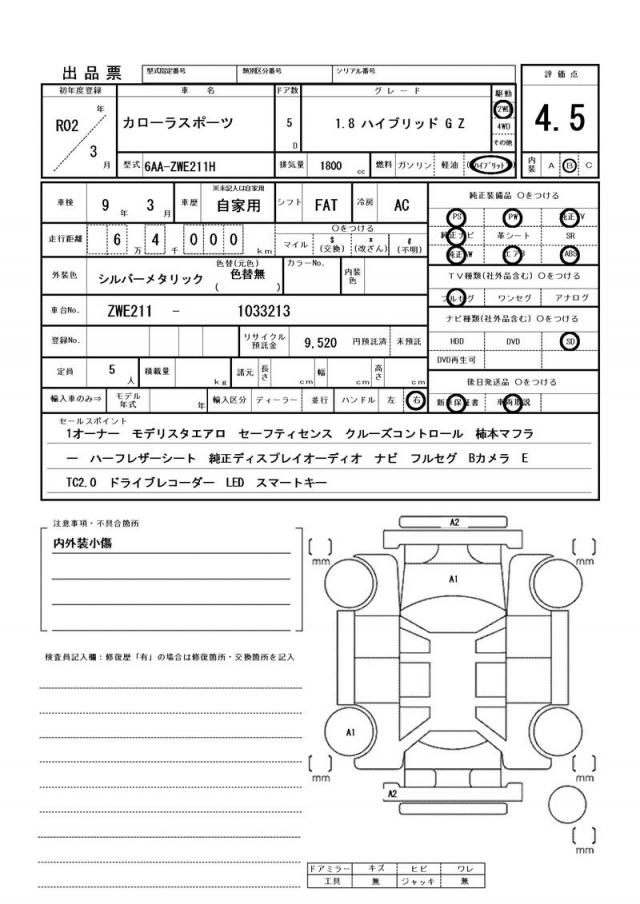 出品票 型式指定番号 類別区分番号 シリアル番号
評価点
4.5
初年度登録 車名 ドア数 グレード 駆動
R02 年 3 月
カローラスポーツ 5 D 1.8 ハイブリッド G Z
2WD
4WD
その他
型式 6AA-ZWE211H 排気量 1800 cc 燃料 ガソリン 軽油 ハイブリッド
内装 A B C
車検 9 年 3 月 車歴 ※未記入は自家用 自家用 シフト FAT 冷房 AC
走行距離 6 万 4 千 0 0 0 km
〇をつける
マイル $(交換) *(改ざん) #(不明)
外装色 シルバーメタリック 色替(元色) 色替無 ( ) カラーNo. 内装色
車台No. ZWE211 - 1033213
登録No. リサイクル預託金 9,520 円預託済 未預託
定員 5 人 積載量 kg 諸元 長さ cm 幅 cm 高さ cm
輸入車のみ⇒ モデル年式 年 輸入区分 ディーラー 並行 ハンドル 左 右
純正装備品 〇をつける
PS PW 純正TV
純正ナビ 革シート SR
純正AW エアB ABS
TV種類(社外品含む) 〇をつける
フルセグ ワンセグ アナログ
ナビ種類(社外品含む) 〇をつける
HDD DVD SD
DVD再生可
後日発送品 〇をつける
新車保証書 車両取説
セールスポイント
1オーナー モデリスタエアロ セーフティセンス クルーズコントロール 柿本マフラ
ー ハーフレザーシート 純正ディスプレイオーディオ ナビ フルセグ Bカメラ E
TC2.0 ドライブレコーダー LED スマートキー
注意事項・不具合箇所
内外装小傷
検査員記入欄:修復歴「有」の場合は修復箇所・交換箇所を記入
A2
[ ] mm
[ ] mm
A1
A1
[ ] mm
[ ] mm
A2
[ ] mm
ドアミラー キズ ヒビ ワレ
工具 無 ジャッキ 無